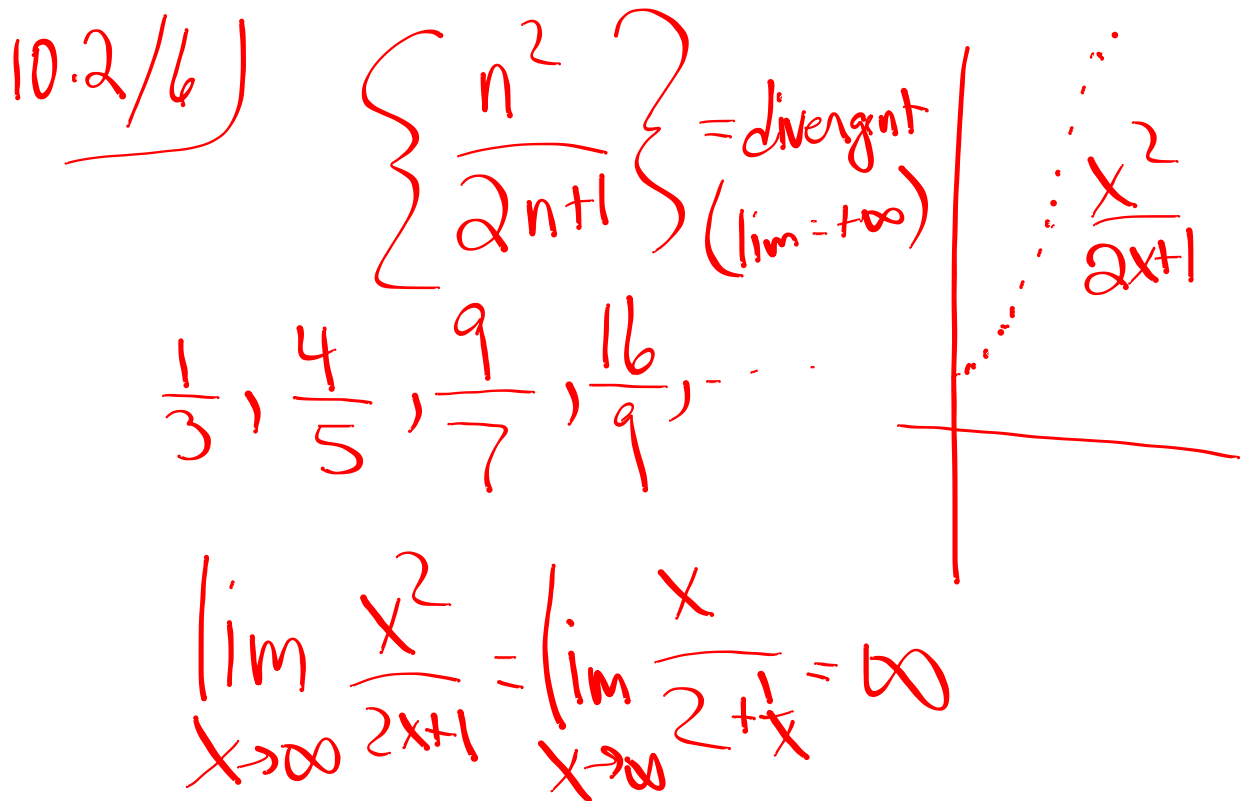 10.2/6
{n²/(2n+1)} = divergent
(lim = +∞)
x²/(2x+1)
1/3, 4/5, 9/7, 16/9, ....
lim x→∞ x²/(2x+1) = lim x→∞ x/(2+1/x) = ∞